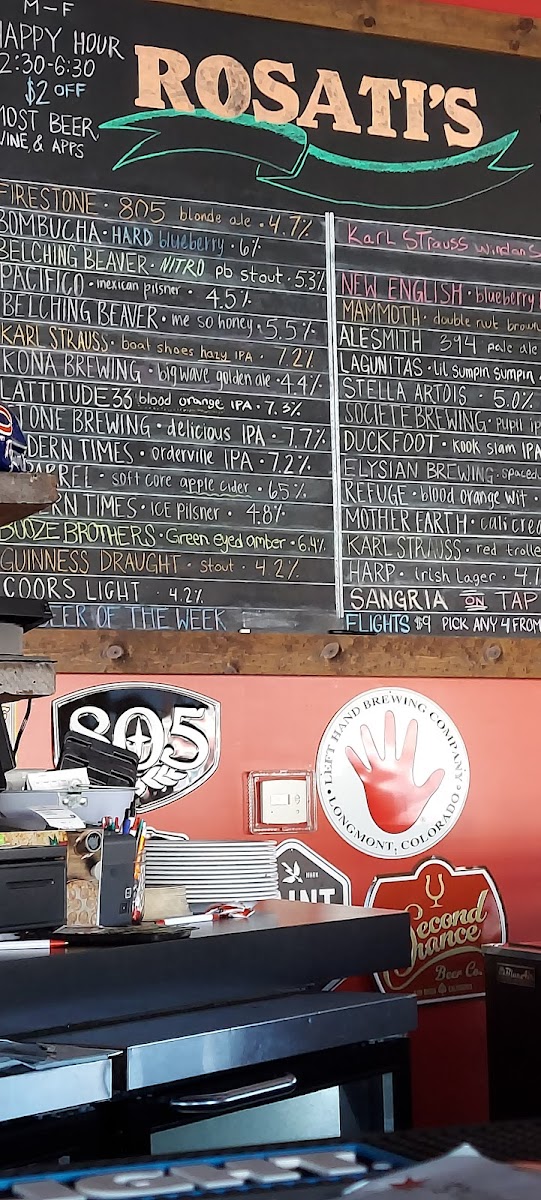 M-F
HAPPY HOUR
2:30-6:30
$2 OFF
MOST BEER,
WINE, & APPS
ROSATI'S
FIRESTONE · 805 blonde ale · 4.7%
BOMBUCHA · HARD blueberry · 6%
BELCHING BEAVER · NITRO pb stout · 5.3%
PACIFICO · mexican pilsner · 4.5%
BELCHING BEAVER · me so honey · 5.5%
KARL STRAUSS · boat shoes hazy IPA · 7.2%
KONA BREWING · big wave golden ale · 4.4%
LATTITUDE 33 blood orange IPA · 7.3%
TONE BREWING · delicious IPA · 7.7%
DERN TIMES · orderville IPA · 7.2%
BARREL · soft core apple cider · 6.5%
RN TIMES · ICE Pilsner · 4.8%
BOOZE BROTHERS · Green eyed amber · 6.4%
GUINNESS DRAUGHT · stout · 4.2%
COORS LIGHT · 4.2%
EER OF THE WEEK
Karl Strauss Windan S
NEW ENGLISH · blueberry
MAMMOTH · double nut brown
ALESMITH 394 pale ale
LAGUNITAS · lil sumpin sumpin
STELLA ARTOIS · 5.0%
SOCIETE BREWING · Pupil IP
DUCKFOOT · Kook Slam IPA
ELYSIAN BREWING · spaced
REFUGE · blood orange wit ·
MOTHER EARTH · cali crea
KARL STRAUSS · red trolle
HARP · Irish Lager · 4.
SANGRIA ON TAP
FLIGHTS $9 PICK ANY 4 FROM
805
LEFT HAND BREWING COMPANY
· LONGMONT, COLORADO ·
INT
Second
Chance
Beer Co.
IGHT